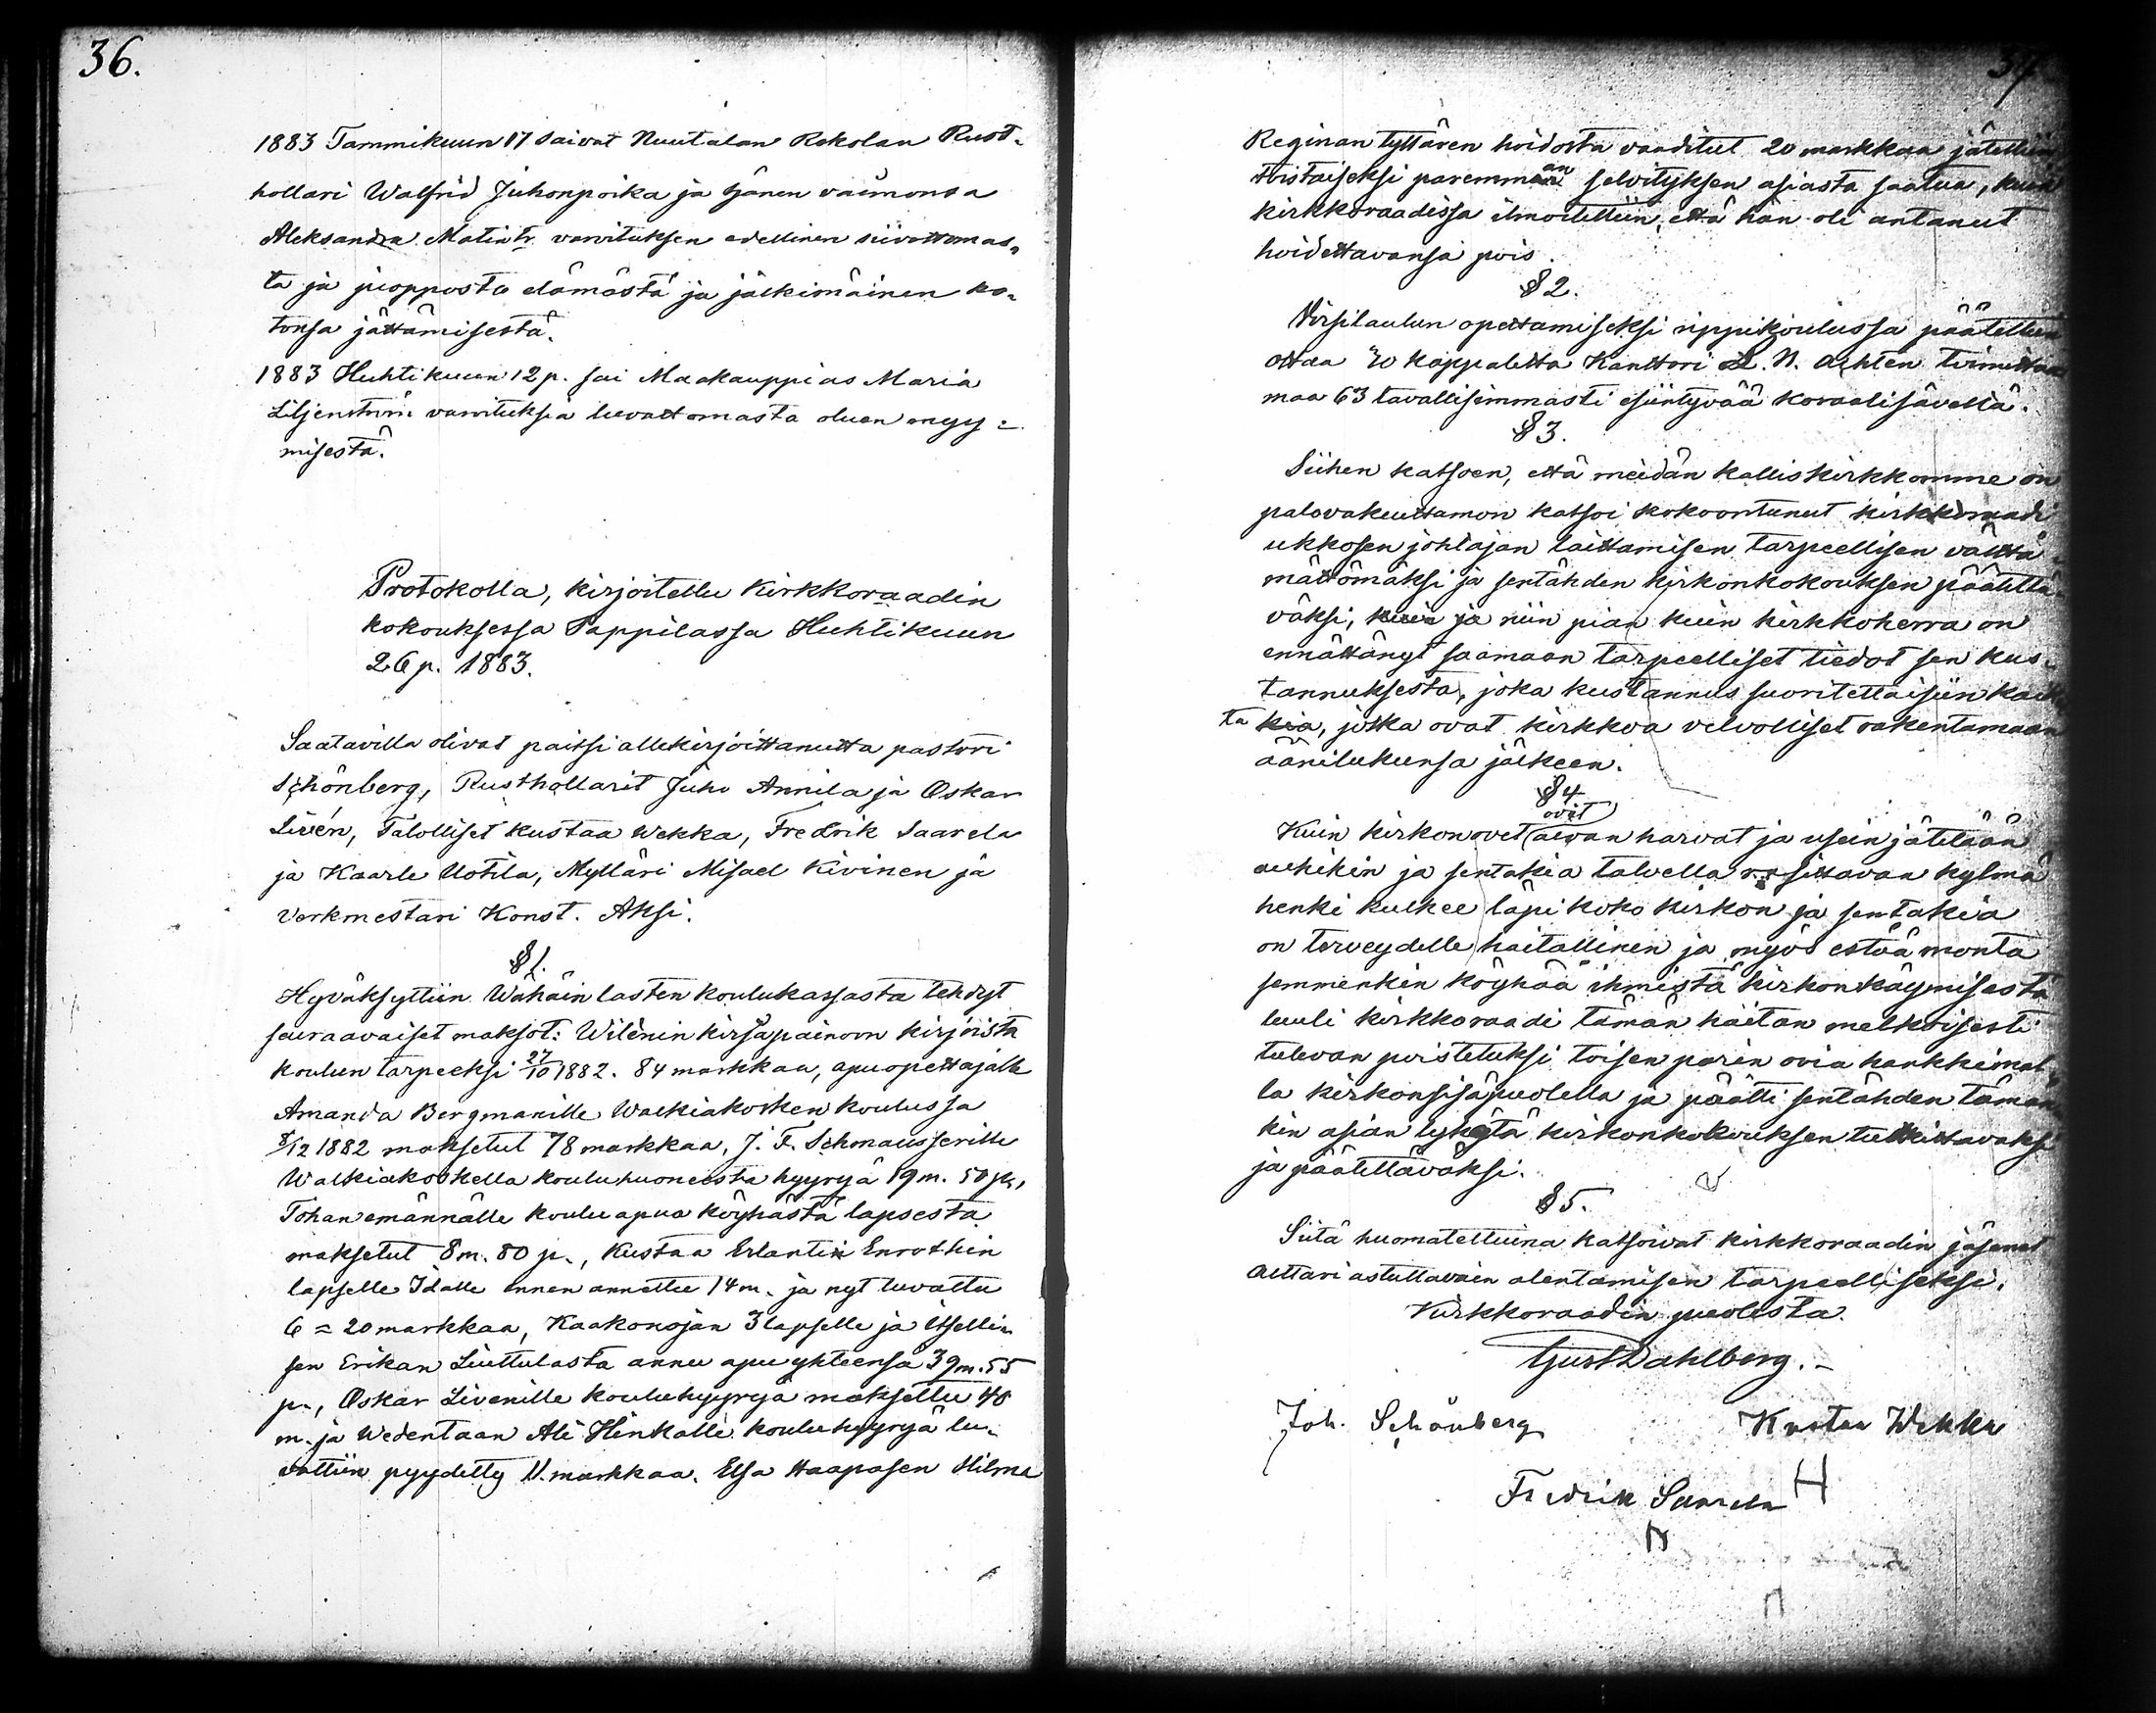 36.
1883 Tammikuun 17 saivat Nuutalan Rekolan Rust-
hollari Walfrid Juhonpoika ja hänen vaimonsa
Aleksandra Matintr varoituksen edellinen siivottomas-
ta ja juopposta elämästä ja jälkimäinen ko-
tonsa jättämisestä.
1883 Huhtikuun 12 p. sai Maakauppias Maria
Liljenström varoituksia luvattomasta oluen myy-
misestä.
Protokolla, kirjoitettu Kirkkoraadin
kokouksessa Pappilassa Huhtikuun
26 p. 1883.
Saatavilla olivat paitsi allekirjoittanutta pastori
Schönberg, Rusthollarit Juho Annila ja Oskar
Livén, Talolliset Kustaa Wekka, Fredrik Saarela
ja Kaarle Uotila, Mylläri Misael Kivinen ja
Verkmestari Konst. Aksi.
§ 1.
Hyväksyttiin Wähäin lasten koulukassasta tehdyt
seuraavaiset maksot: Wilénin kirjapainoon kirjoista
koulun tarpeeksi 27/10 1882. 84 markkaa, apuopettajalle
Amanda Bergmanille Walkiakosken koulussa
8/12 1882 maksetut 78 markkaa, J. F. Schmausserille
Walkiakoskella kouluhuoneesta hyyryä 19 m. 50 p.,
Tohan emännälle kouluapua köyhästä lapsesta
maksetut 8 m. 80 p., Kustaa Erlantin Enrothin
lapselle Idalle ennen annettu 14 m. ja nyt luvattu
6 = 20 markkaa, Kaakonojan 3 lapselle ja itselli-
sen Erikan Liuttulasta annu apu yhteensä 39 m. 55
p., Oskar Livenille kouluhyyryä maksettu 40
m. ja Wedentaan Ali Hinkalle kouluhyyryä lu-
vattiin pyydetty 11. markkaa. Elsa Haapasen Hilma
37
Reginan tyttären hoidosta vaaditut 20 markkaa jätettiin
toistaiseksi paremman selvityksen asiasta saatua, kuin
kirkkoraadissa ilmoitettiin, että hän oli antanut
hoidettavansa pois.
§ 2.
Virsilaulun opettamiseksi rippikoulussa päätettiin
ottaa 20 kappaletta Kanttori L. N. Achtén toimitta-
maa 63 tavallisimmasti esiintyvää koraalisäveltä.
§ 3.
Siihen katsoen, että meidän kallis kirkkomme on
palovakuuttamon katsoi kokoontunut kirkkoraadi
ukkosen johtajan laittamisen tarpeellisen vältta-
mättömäksi ja sentähden kirkonkokouksen päätettä-
väksi, kuin ja niin pian kuin kirkkoherra on
ennättänyt saamaan tarpeelliset tiedot sen kus-
tannuksesta, joka kustannus suoritettaisiin kaik
ta kia, jotka ovat kirkkoa velvolliset rakentamaan
äänilukunsa jälkeen.
§ 4
ovat
Kuin kirkon ovet aivan harvat ja usein jätetään
aukikin ja sentakia talvella rasittavan kylmä
henki kulkee läpi koko kirkon ja sentakia
on terveydelle haitallinen ja myös estää monta
semmenkin köyhää ihmistä kirkonkäymisestä
luuli kirkkoraadi tämän haitan melkoisesti
tulevan poistetuksi toisen parin ovia hankkimal-
la kirkon sisäpuolella ja päätti sentähden tämän
kin asian lykätä kirkonkokouksen tutkittavaksi
ja päätettäväksi.
§ 5.
Siitä huomatettuina katsoivat kirkkoraadin jäsenet
alttari astuttavain alentamisen tarpeelliseksi.
Kirkkoraadin puolesta.
Gust Dahlberg.-
Joh. Schönberg
Kustaa Wekka
Fredrik Saarela H